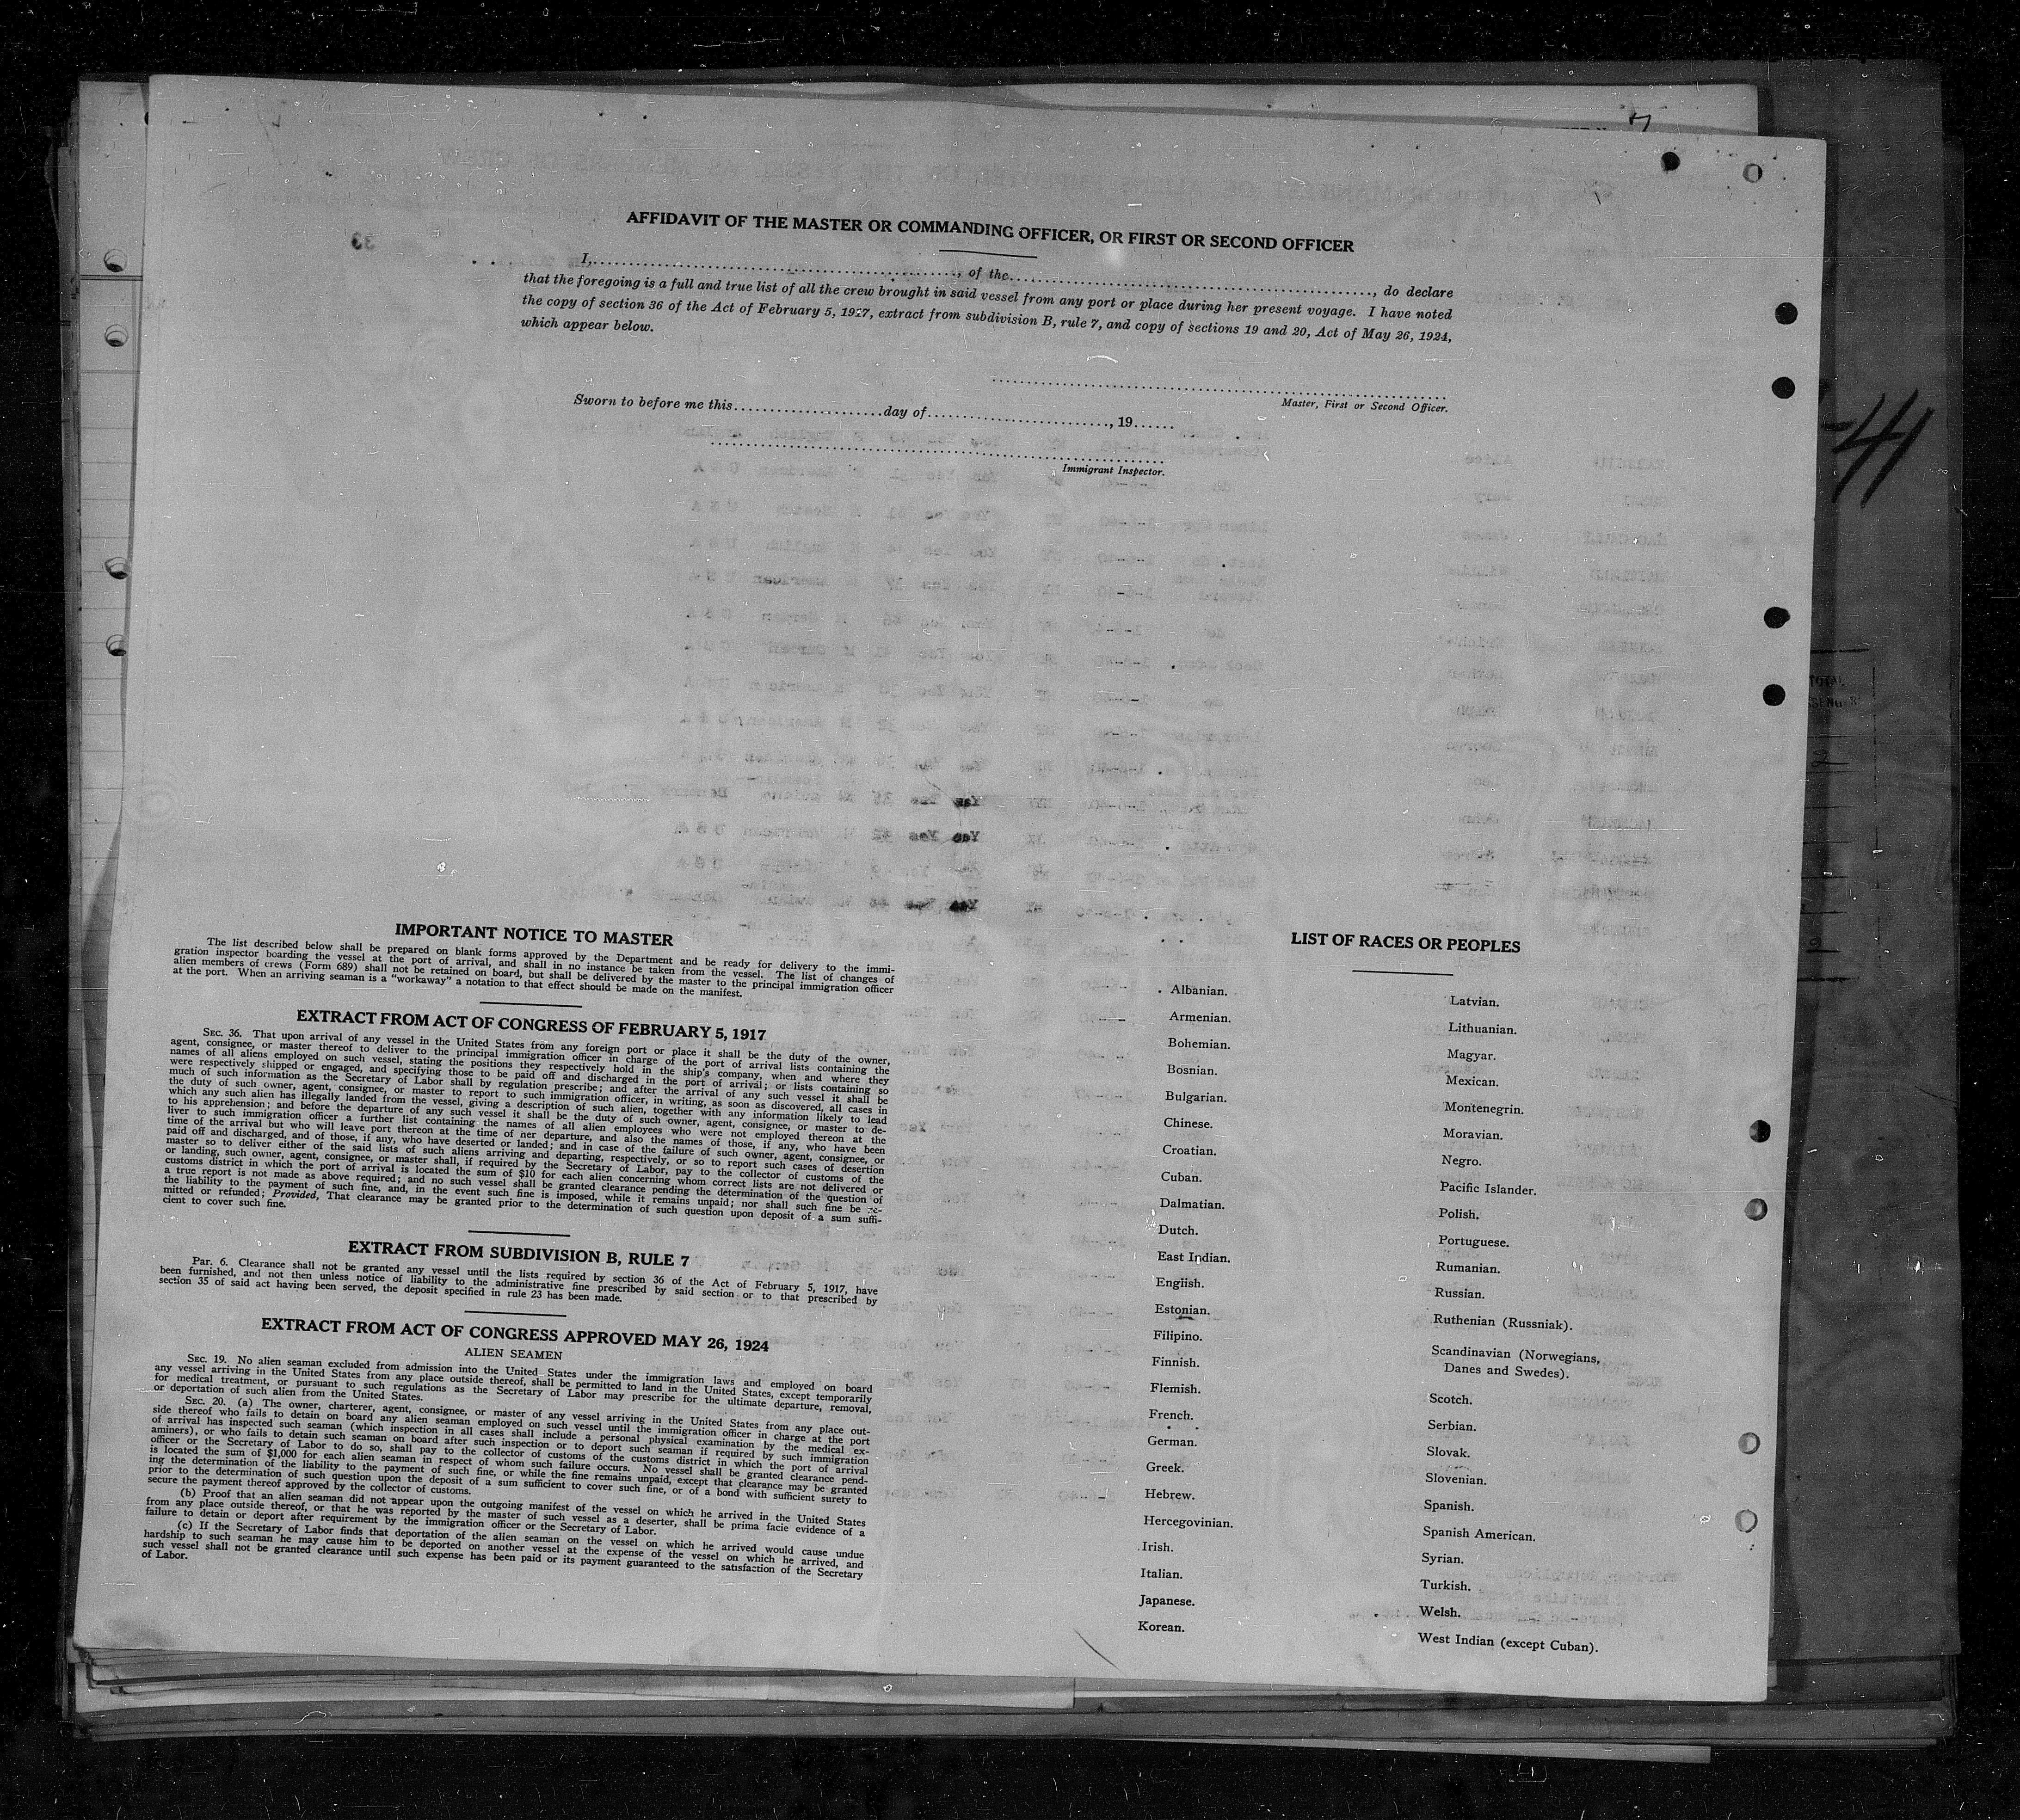 AFFIDAVIT OF THE MASTER OR COMMANDING OFFICER, OR FIRST OR SECOND OFFICER
I,..............................., of the..............................., do declare
that the foregoing is a full and true list of all the crew brought in said vessel from any port or place during her present voyage. I have noted
the copy of section 36 of the Act of February 5, 1927, extract from subdivision B, rule 7, and copy of sections 19 and 20, Act of May 26, 1924,
which appear below.
Master, First or Second Officer.
Sworn to before me this....................day of..............................., 19......
Immigrant Inspector.
-41
TOTAL
IMPORTANT NOTICE TO MASTER
The list described below shall be prepared on blank forms approved by the Department and be ready for delivery to the immi-
gration inspector boarding the vessel at the port of arrival, and shall in no instance be taken from the vessel. The list of changes of
alien members of crews (Form 689) shall not be retained on board, but shall be delivered by the master to the principal immigration officer
at the port. When an arriving seaman is a "workaway" a notation to that effect should be made on the manifest.
EXTRACT FROM ACT OF CONGRESS OF FEBRUARY 5, 1917
SEC. 36. That upon arrival of any vessel in the United States from any foreign port or place it shall be the duty of the owner,
agent, consignee, or master thereof to deliver to the principal immigration officer in charge of the port of arrival lists containing the
names of all aliens employed on such vessel, stating the positions they respectively hold in the ship's company, when and where they
were respectively shipped or engaged, and specifying those to be paid off and discharged in the port of arrival; or lists containing so
much of such information as the Secretary of Labor shall by regulation prescribe; and after the arrival of any such vessel it shall be
the duty of such owner, agent, consignee, or master to report to such immigration officer, in writing, as soon as discovered, all cases in
which any such alien has illegally landed from the vessel, giving a description of such alien, together with any information likely to lead
to his apprehension; and before the departure of any such vessel it shall be the duty of such owner, agent, consignee, or master to de-
liver to such immigration officer a further list containing the names of all alien employees who were not employed thereon at the
time of the arrival but who will leave port thereon at the time of her departure, and also the names of those, if any, who have been
paid off and discharged, and of those, if any, who have deserted or landed; and in case of the failure of such owner, agent, consignee, or
master so to deliver either of the said lists of such aliens arriving and departing, respectively, or so to report such cases of desertion
or landing, such owner, agent, consignee, or master shall, if required by the Secretary of Labor, pay to the collector of customs of the
customs district in which the port of arrival is located the sum of $10 for each alien concerning whom correct lists are not delivered or
a true report is not made as above required; and no such vessel shall be granted clearance pending the determination of the question of
the liability to the payment of such fine, and, in the event such fine is imposed, while it remains unpaid; nor shall such fine be re-
mitted or refunded; Provided, That clearance may be granted prior to the determination of such question upon deposit of a sum suffi-
cient to cover such fine.
EXTRACT FROM SUBDIVISION B, RULE 7
Par. 6. Clearance shall not be granted any vessel until the lists required by section 36 of the Act of February 5, 1917, have
been furnished, and not then unless notice of liability to the administrative fine prescribed by said section or to that prescribed by
section 35 of said act having been served, the deposit specified in rule 23 has been made.
EXTRACT FROM ACT OF CONGRESS APPROVED MAY 26, 1924
ALIEN SEAMEN
SEC. 19. No alien seaman excluded from admission into the United States under the immigration laws and employed on board
any vessel arriving in the United States from any place outside thereof, shall be permitted to land in the United States, except temporarily
for medical treatment, or pursuant to such regulations as the Secretary of Labor may prescribe for the ultimate departure, removal,
or deportation of such alien from the United States.
SEC. 20. (a) The owner, charterer, agent, consignee, or master of any vessel arriving in the United States from any place out-
side thereof who fails to detain on board any alien seaman employed on such vessel until the immigration officer in charge at the port
of arrival has inspected such seaman (which inspection in all cases shall include a personal physical examination by the medical ex-
aminers), or who fails to detain such seaman on board after such inspection or to deport such seaman if required by such immigration
officer or the Secretary of Labor to do so, shall pay to the collector of customs of the customs district in which the port of arrival
is located the sum of $1,000 for each alien seaman in respect of whom such failure occurs. No vessel shall be granted clearance pend-
ing the determination of the liability to the payment of such fine, or while the fine remains unpaid, except that clearance may be granted
prior to the determination of such question upon the deposit of a sum sufficient to cover such fine, or of a bond with sufficient surety to
secure the payment thereof approved by the collector of customs.
(b) Proof that an alien seaman did not appear upon the outgoing manifest of the vessel on which he arrived in the United States
from any place outside thereof, or that he was reported by the master of such vessel as a deserter, shall be prima facie evidence of a
failure to detain or deport after requirement by the immigration officer or the Secretary of Labor.
(c) If the Secretary of Labor finds that deportation of the alien seaman on the vessel on which he arrived would cause undue
hardship to such seaman he may cause him to be deported on another vessel at the expense of the vessel on which he arrived, and
such vessel shall not be granted clearance until such expense has been paid or its payment guaranteed to the satisfaction of the Secretary
of Labor.
LIST OF RACES OR PEOPLES
Albanian.
Armenian.
Bohemian.
Bosnian.
Bulgarian.
Chinese.
Croatian.
Cuban.
Dalmatian.
Dutch.
East Indian.
English.
Estonian.
Filipino.
Finnish.
Flemish.
French.
German.
Greek.
Hebrew.
Hercegovinian.
Irish.
Italian.
Japanese.
Korean.
Latvian.
Lithuanian.
Magyar.
Mexican.
Montenegrin.
Moravian.
Negro.
Pacific Islander.
Polish.
Portuguese.
Rumanian.
Russian.
Ruthenian (Russniak).
Scandinavian (Norwegians,
Danes and Swedes).
Scotch.
Serbian.
Slovak.
Slovenian.
Spanish.
Spanish American.
Syrian.
Turkish.
Welsh.
West Indian (except Cuban).